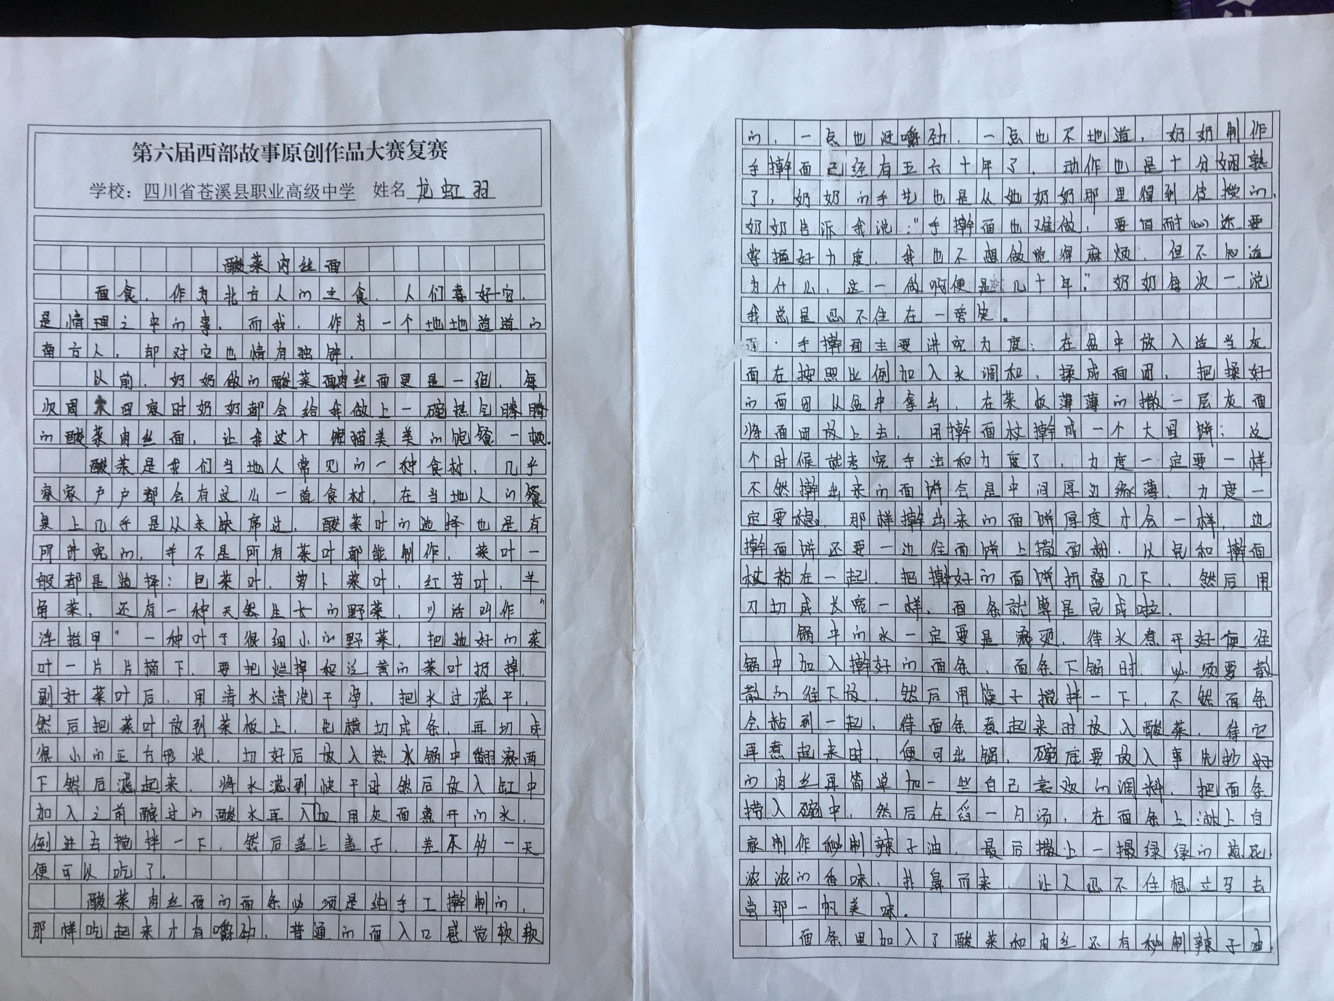 第六届西部故事原创作品大赛复赛
学校：四川省苍溪县职业高级中学 姓名 龙虹羽
酸菜肉丝面
面食，作为北方人的主食，人们喜好它，
是情理之中的事。而我，作为一个地地道道的
南方人，却对它也情有独钟。
以前，奶奶做的酸菜肉丝面更是一绝，每
次周末回家时奶奶都会给我做上一碗热气腾腾
的酸菜肉丝面，让我这个馋猫美美的饱餐一顿。
酸菜是我们当地人常见的一种食材，几乎
家家户户都会有这么一道食材，在当地人的餐
桌上几乎是从来缺席过，酸菜叶的选择也是有
所讲究的，并不是所有菜叶都能制作，菜叶一
般都是选择：包菜叶，萝卜菜叶，红苕叶，羊
角菜，还有一种天然生长的野菜，叫作"
浮 甲"一种叶子很细小的野菜，把选好的菜
叶一片片摘下，要把烂掉和泛黄的菜叶扔掉，
副好菜叶后，用清水清洗干净，把水过滤干，
然后把菜叶放到菜板上，先横切成条，再切成
很小的正方形状，切好后放入热水锅中翻滚两
下然后滤起来，将水滤到快干时然后放入缸中
加入之前酿过的酸水再入加用灰面煮开的水，
倒进去搅拌一下，然后盖上盖子，差不多的一天
便可以吃了。
酸菜肉丝面的面条必须是纯手工擀制的，
那样吃起来才有嚼劲，普通的面入口感觉软软
的，一点也没嚼劲，一点也不地道，奶奶制作
手擀面已经有五六十年了，动作也是十分娴熟
了，奶奶的手艺也是从她奶奶那里得到传授的，
奶奶告诉我说："手擀面也难做，要有耐心还要
掌握好力度，我也不想做觉得麻烦，但不知道
为什么，这一做啊便是几十年"奶奶每次一说
我总是忍不住在一旁笑。
手擀面主要讲究力度；在盆中放入适当灰
面在按照比例加入水调和，揉成面团，把揉好
的面团从盆中拿出，在菜板薄薄的撒一层灰面
将面团放上去，用擀面杖擀成一个大圆饼；这
个时候就考究手法和力度了，力度一定要一样
不然擀出来的面饼会是中间厚边缘薄，力度一
定要稳，那样擀出来的面饼厚度才会一样，边
擀面饼还要一边往面饼上撒面粉，以免和擀面
杖粘在一起，把擀好的面饼折叠几下，然后用
刀切成长宽一样，面条就算是完成啦。
锅中的水一定要是滚烫，待水煮开好便往
锅中加入擀好的面条，面条下锅时，必须要散
散的往下放，然后用筷子搅拌一下，不然面条
会粘到一起，待面条煮起来时放入酸菜，待它
再煮起来时，便可出锅，碗底要放入事先炒好
的肉丝再简单加一些自己喜欢的调料，把面条
捞入碗中，然后在舀一勺汤，在面条上淋上自
家制作秘制辣子油，最后撒上一撮绿绿的葱花
浓浓的香味，扑鼻而来，让人忍不住想立马去
尝那一帆美味。
面条里加入了酸菜和肉丝还有秘制辣子油，